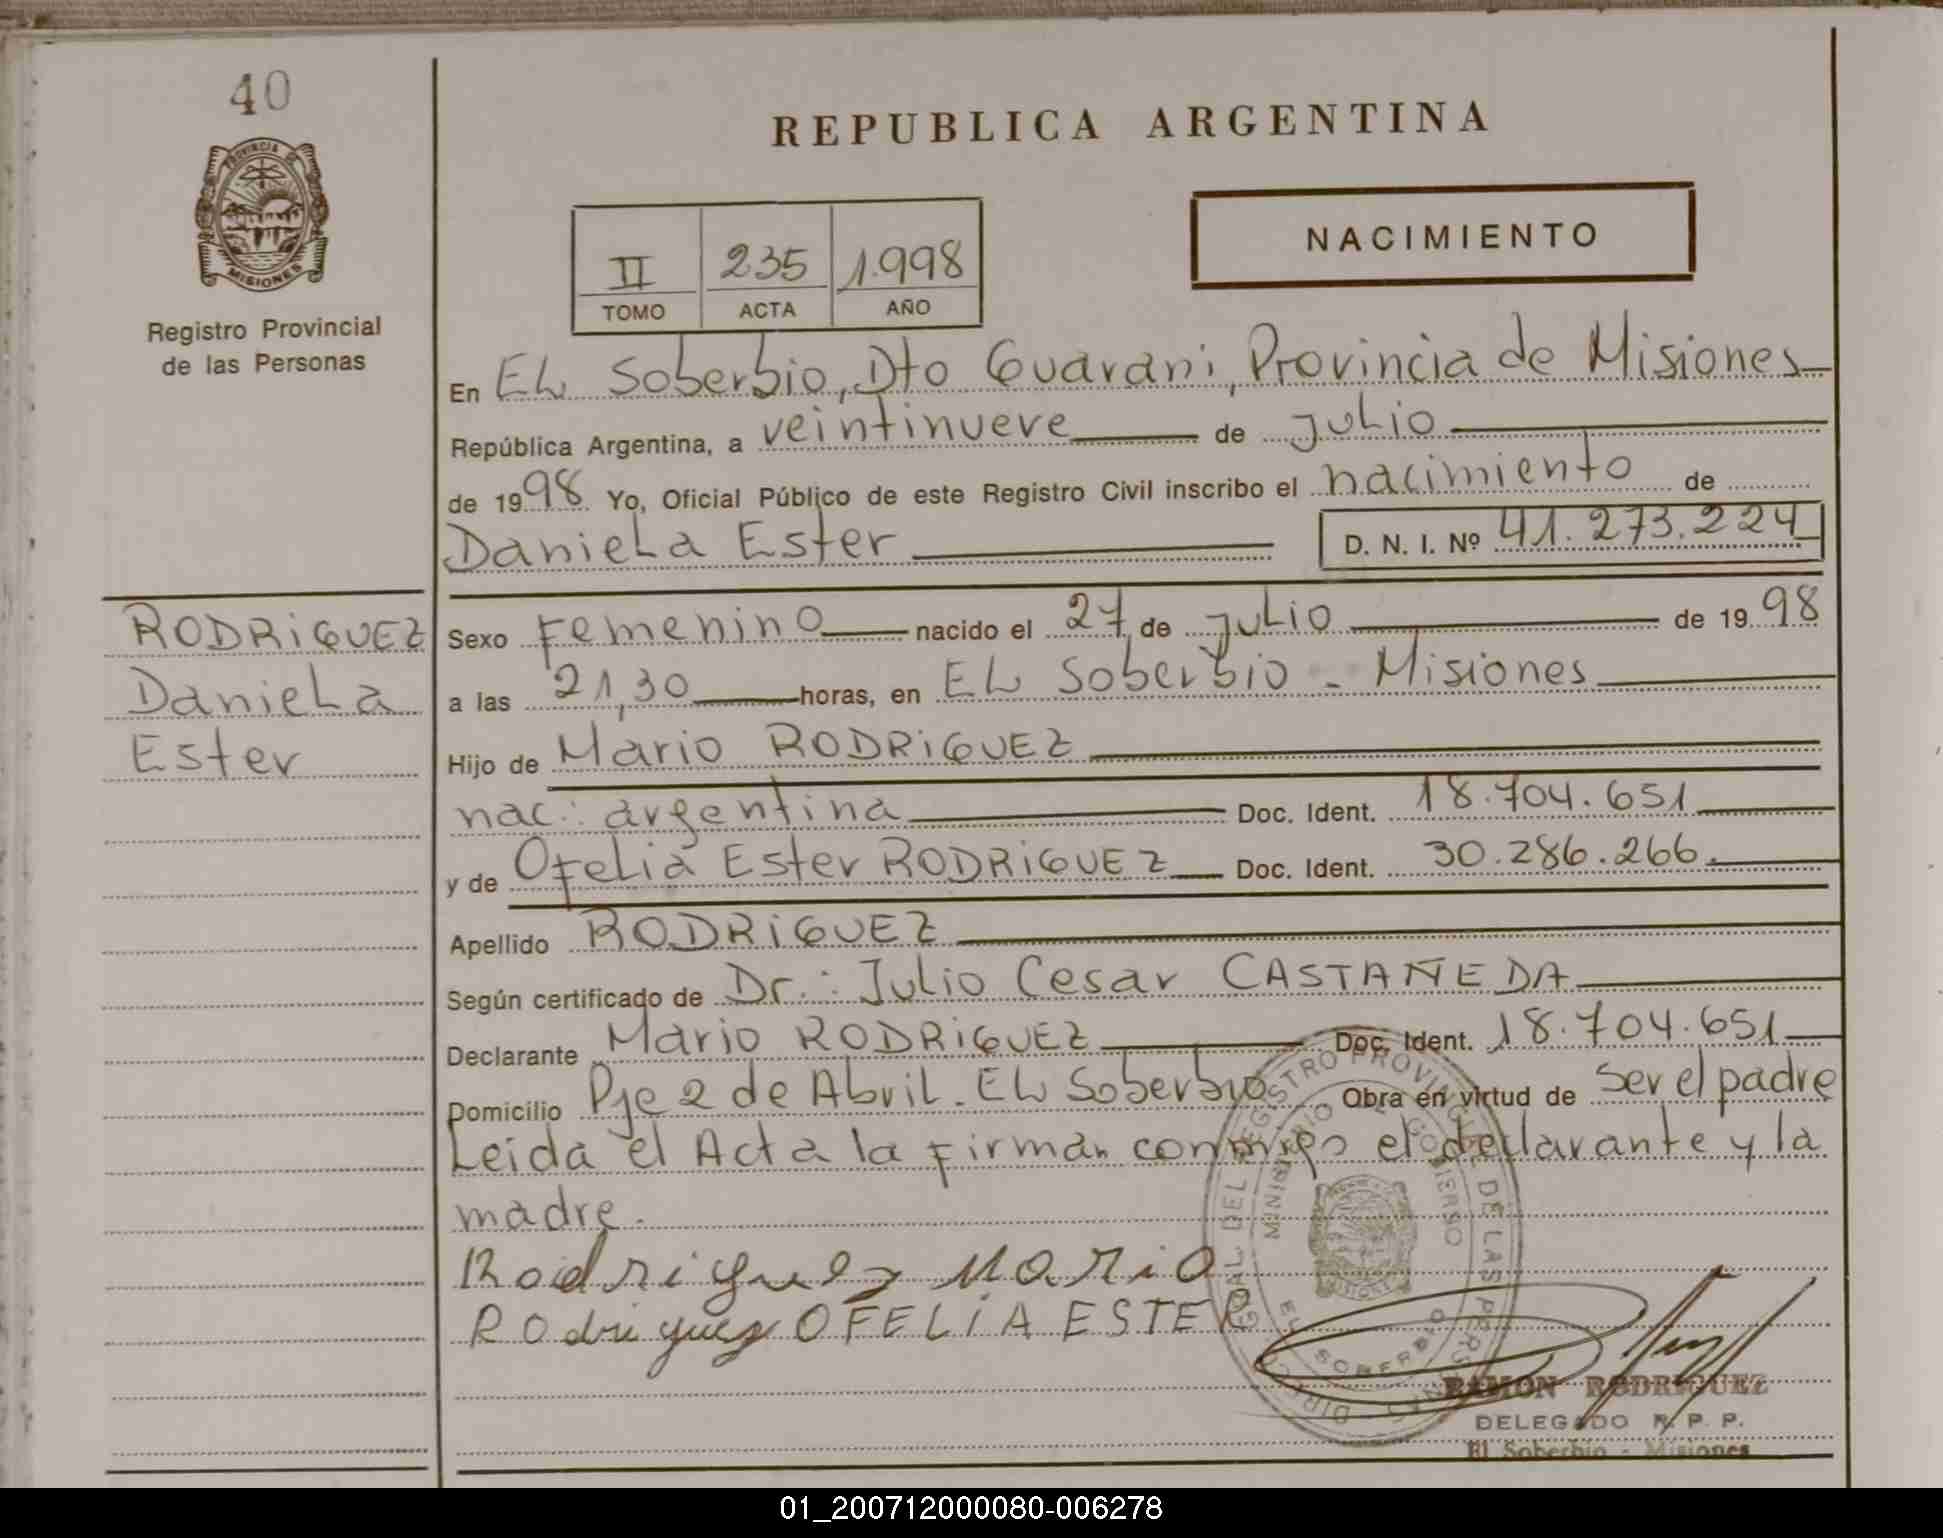 40
REPUBLICA ARGENTINA
PROVINCIA DE
MISIONES
Registro Provincial
de las Personas
NACIMIENTO
II 235 1.998
TOMO ACTA AÑO
En EL Soberbio, Dto Guarani, Provincia de Misiones
República Argentina, a veintinueve de julio
de 1998 Yo, Oficial Público de este Registro Civil inscribo el nacimiento de
Daniela Ester D. N. I. Nº 41.273.224
RODRIGUEZ
Daniela
Ester
Sexo Femenino nacido el 27 de julio de 1998
a las 21,30 horas, en EL Soberbio - Misiones
Hijo de Mario RODRIGUEZ
nac: argentina Doc. Ident. 18.704.651
y de Ofelia Ester RODRIGUEZ Doc. Ident. 30.286.266.
Apellido RODRIGUEZ
Según certificado de Dr.: Julio Cesar CASTAÑEDA
Declarante Mario RODRIGUEZ Doc. Ident. 18.704.651
Domicilio Pje 2 de Abril. EL Soberbio Obra en virtud de ser el padre
Leida el Acta la firman conmigo el declarante y la
madre.
Rodriguez Mario
Rodriguez OFELIA ESTER
REGISTRO PROVINCIAL DE LAS PERSONAS
MINISTERIO DE GOBIERNO
EL SOBERBIO
RAMON RODRIGUEZ
DELEGADO R. P. P.
El Soberbio - Misiones
01_200712000080-006278